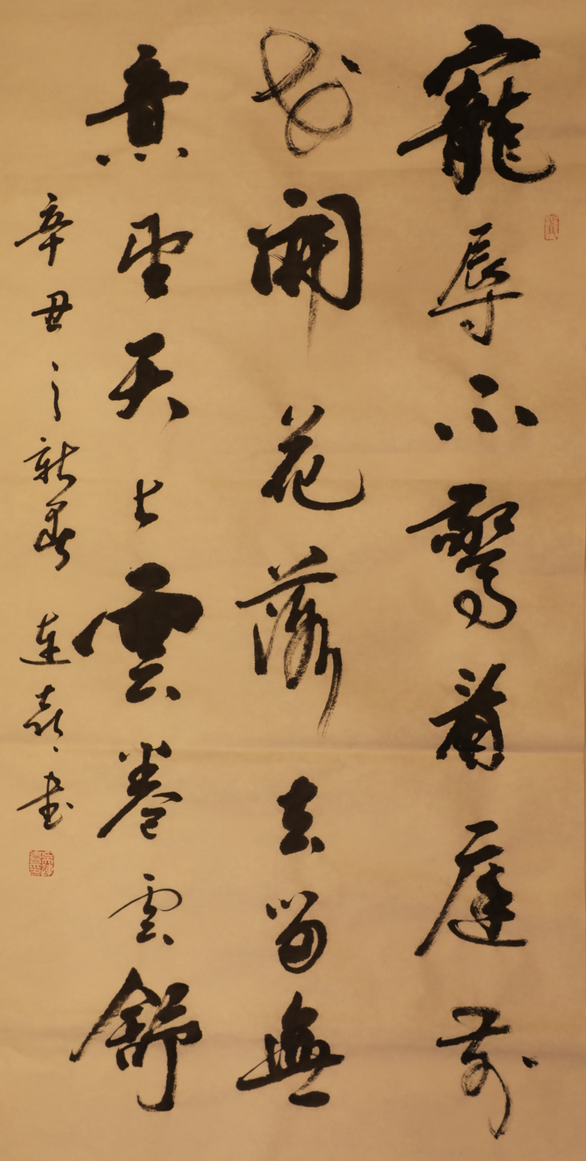 寵辱不驚看庭前
花開花落去留無
意望天上雲卷雲舒
辛丑之新春 連喜书